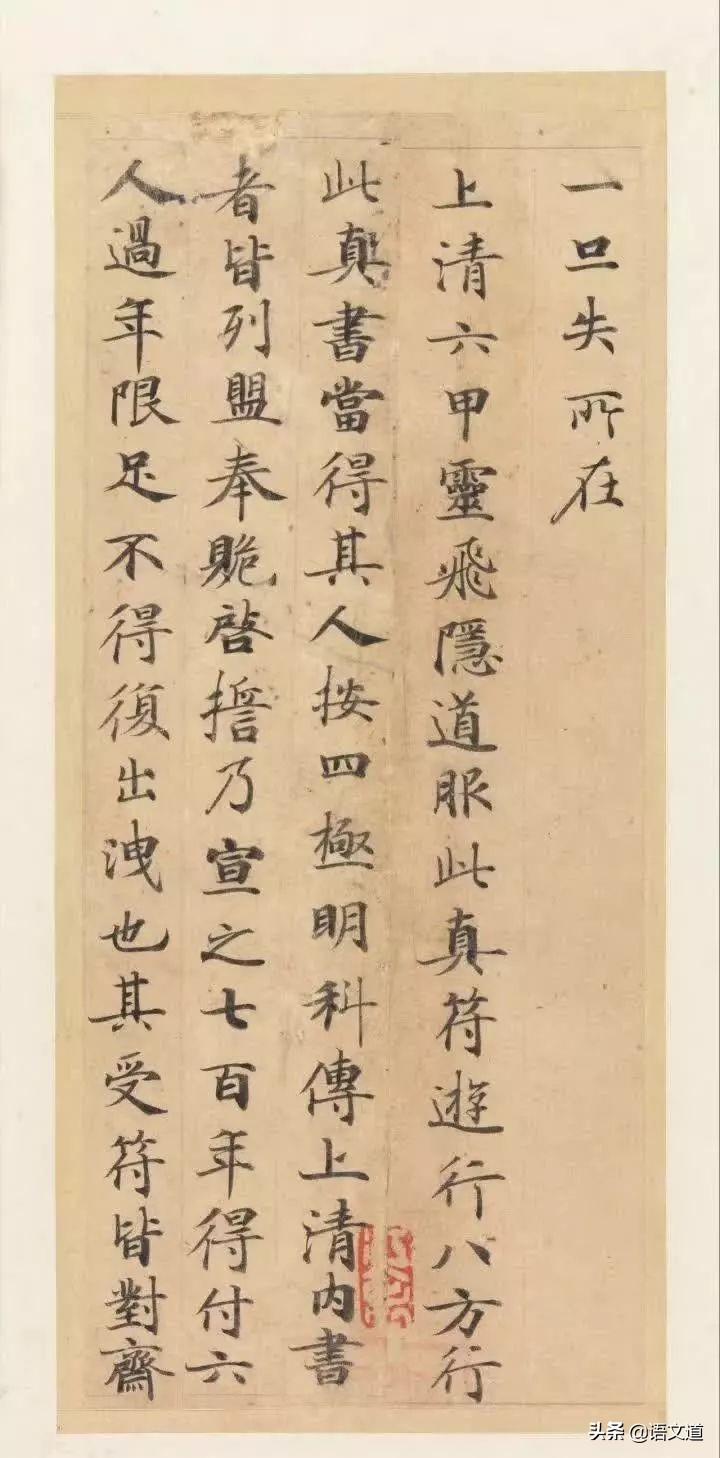 一旦失所在
上清六甲靈飛隱道服此真符遊行八方行
此真書當得其人按四極明科傳上清內書
者皆列盟奉貺啓誓乃宣之七百年得付六
人過年限足不得復出洩也其受符皆對齋
头条 @语文道